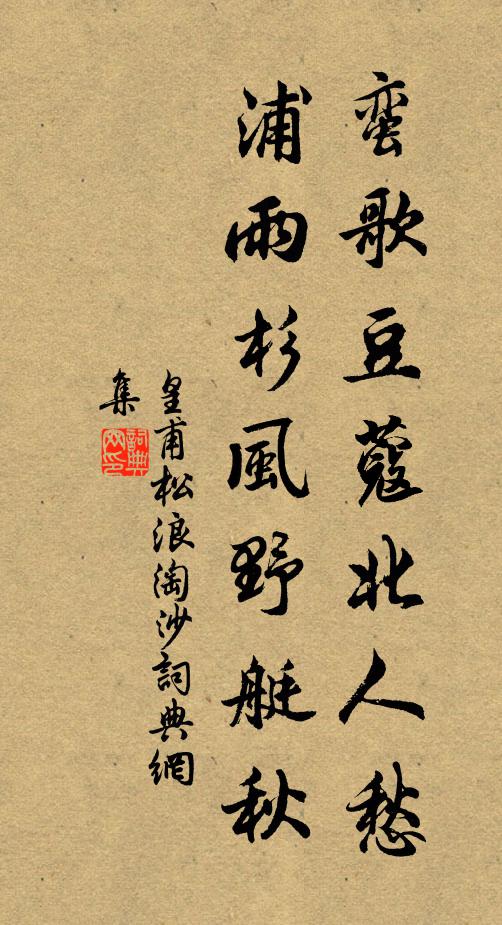 蛮歌豆蔻北人愁
浦雨杉風野艇秋
皇甫松浪淘沙詞典網
集
詞典網印